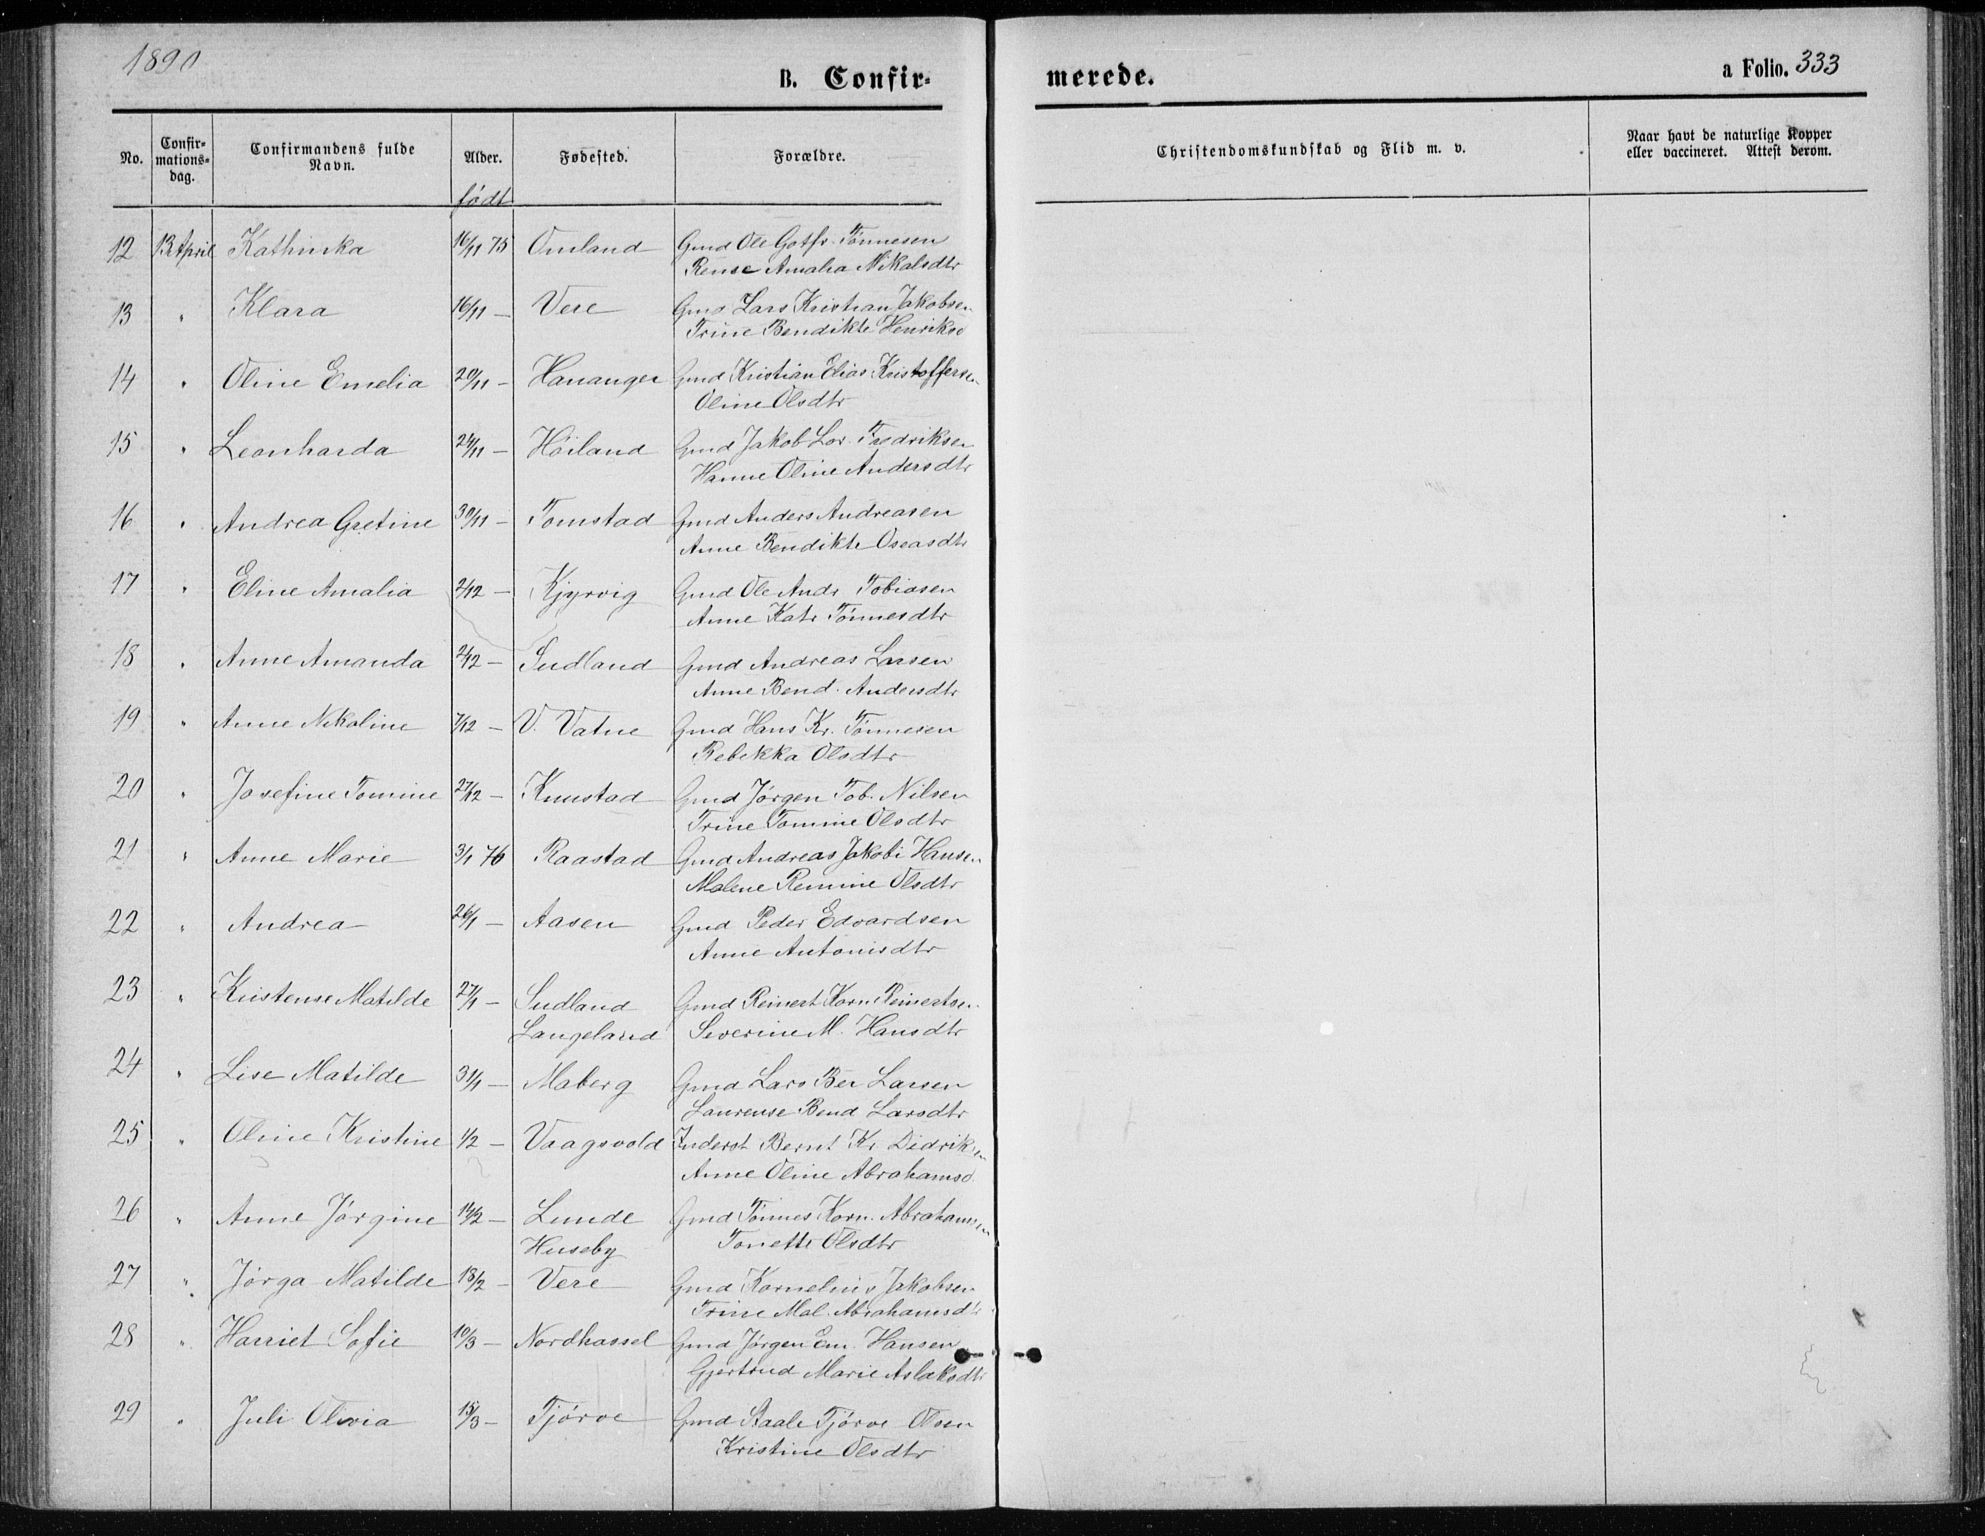 1890
B. Confirmerede.
a Folio. 333
No. Confirmationsdag. Confirmandens fulde Navn. Alder. Fødested. Forældre. Christendomskundskab og Flid m. v. Naar havt de naturlige Kopper eller vaccineret. Attest derom.
født
12 13 April Kathinka 16/11 75 Omland Gmd Ole Gotfr. Tønnesen
Rense Amalia Nikalsdtr
13 " Klara 16/11 — Vere Gmd Lars Kristian Jakobsen
Trine Bendikte Henriksd
14 " Oline Emelia 20/11 — Hananger Gmd Kristian Elias Kristoffersen
Oline Olsdtr
15 " Leonharda 24/11 — Höiland Gmd Jakob Lor. Fredriksen
Hanne Oline Andersdtr
16 " Andrea Gretine 30/11 — Tomstad Gmd Anders Andreasen
Anne Bendikte Oseasdtr
17 " Eline Amalia 2/12 — Kjørvig Gmd Ole Andr Tobiasen
Anne Katr Tønnesdtr
18 " Anne Amanda 2/12 — Sudland Gmd Andreas Larsen
Anne Bend. Andersdtr
19 " Anne Nikoline 7/12 — V. Vatne Gmd Hans Kr. Tønnesen
Rebekka Olsdtr
20 " Josefine Tomine 27/12 — Knustad Gmd Jørgen Tob. Nilsen
Trine Tomine Olsdtr
21 " Anne Marie 3/1 76 Raastad Gmd Andreas Jakobi Hansen
Malene Remine Olsdtr
22 " Andrea 26/1 — Aasen Gmd Peder Edvardsen
Anne Antonisdtr
23 " Kristense Matilde 27/1 — Sudland Gmd Reinert Korn. Reinertsen
Langeland Severine M. Hansdtr
24 " Lise Matilde 31/1 — Maberg Gmd Lars Ber Larsen
Laurense Bend Larsdtr
25 " Oline Kristine 1/2 — Vaagsvold Inderst Bernt Kr. Didriksen
Anne Oline Abrahamsd.
26 " Anne Jørgine 14/2 — Lunde Gmd Tønnes Korn. Abrahamsen
Huseby Tonette Olsdtr
27 " Jørga Matilde 18/2 — Vere Gmd Kornelius Jakobsen
Trine Mal. Abrahamsdtr
28 " Harriet Sofie 10/3 — Nordhassel Gmd Jørgen Em. Hansen
Gjertrud Marie Aslaksdtr
29 " Juli Olivia 15/3 — Tjørve Gmd Staale Tjørve Olsen
Kristine Olsdtr